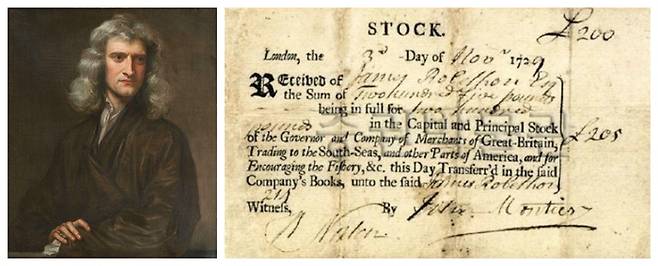 STOCK.
£200
London, the 3d Day of Novr 1729
REceived of James Robethon Esq
the Sum of Two hundred five pounds
being in full for two hundred
pounds in the Capital and Principal Stock
of the Governor and Company of Merchants of Great-Britain,
£205
Trading to the South-Seas, and other Parts of America, and for
Encouraging the Fishery, &c. this Day Transferr'd in the said
Company's Books, unto the said James Robethon
Witness, By John